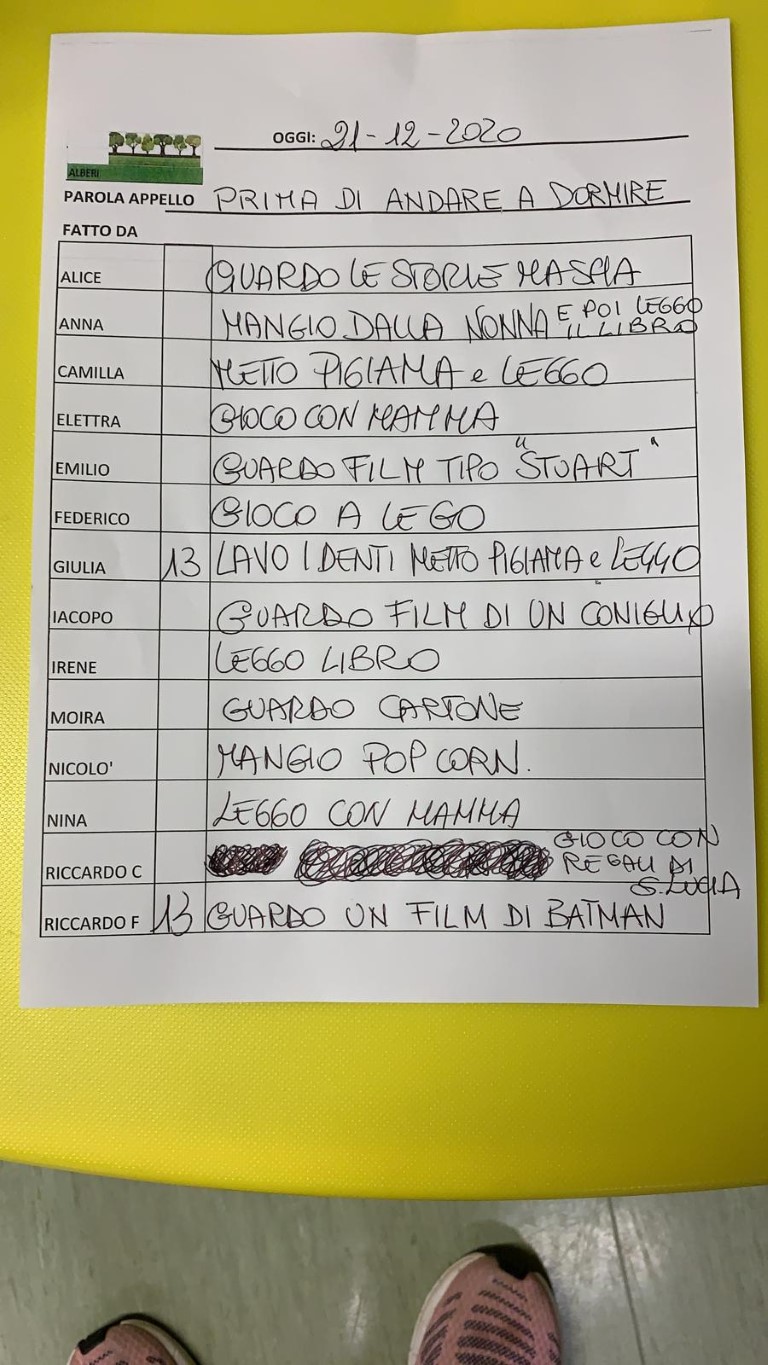 OGGI: 21-12-2020
ALBERI
PAROLA APPELLO PRIMA DI ANDARE A DORMIRE
FATTO DA
ALICE GUARDO LE STORIE MASHA
ANNA MANGIO DALLA NONNA E POI LEGGO
IL LIBRO
CAMILLA METTO PIGIAMA e LEGGO
ELETTRA GIOCO CON MAMMA
EMILIO GUARDO FILM TIPO "STUART"
FEDERICO GIOCO A LEGO
GIULIA 13 LAVO I DENTI METTO PIGIAMA e LEGGO
IACOPO GUARDO FILM DI UN CONIGLIO
IRENE LEGGO LIBRO
MOIRA GUARDO CARTONE
NICOLO' MANGIO POP CORN.
NINA LEGGO CON MAMMA
RICCARDO C GIOCO CON
REGALI DI
S. LUCIA
RICCARDO F 13 GUARDO UN FILM DI BATMAN